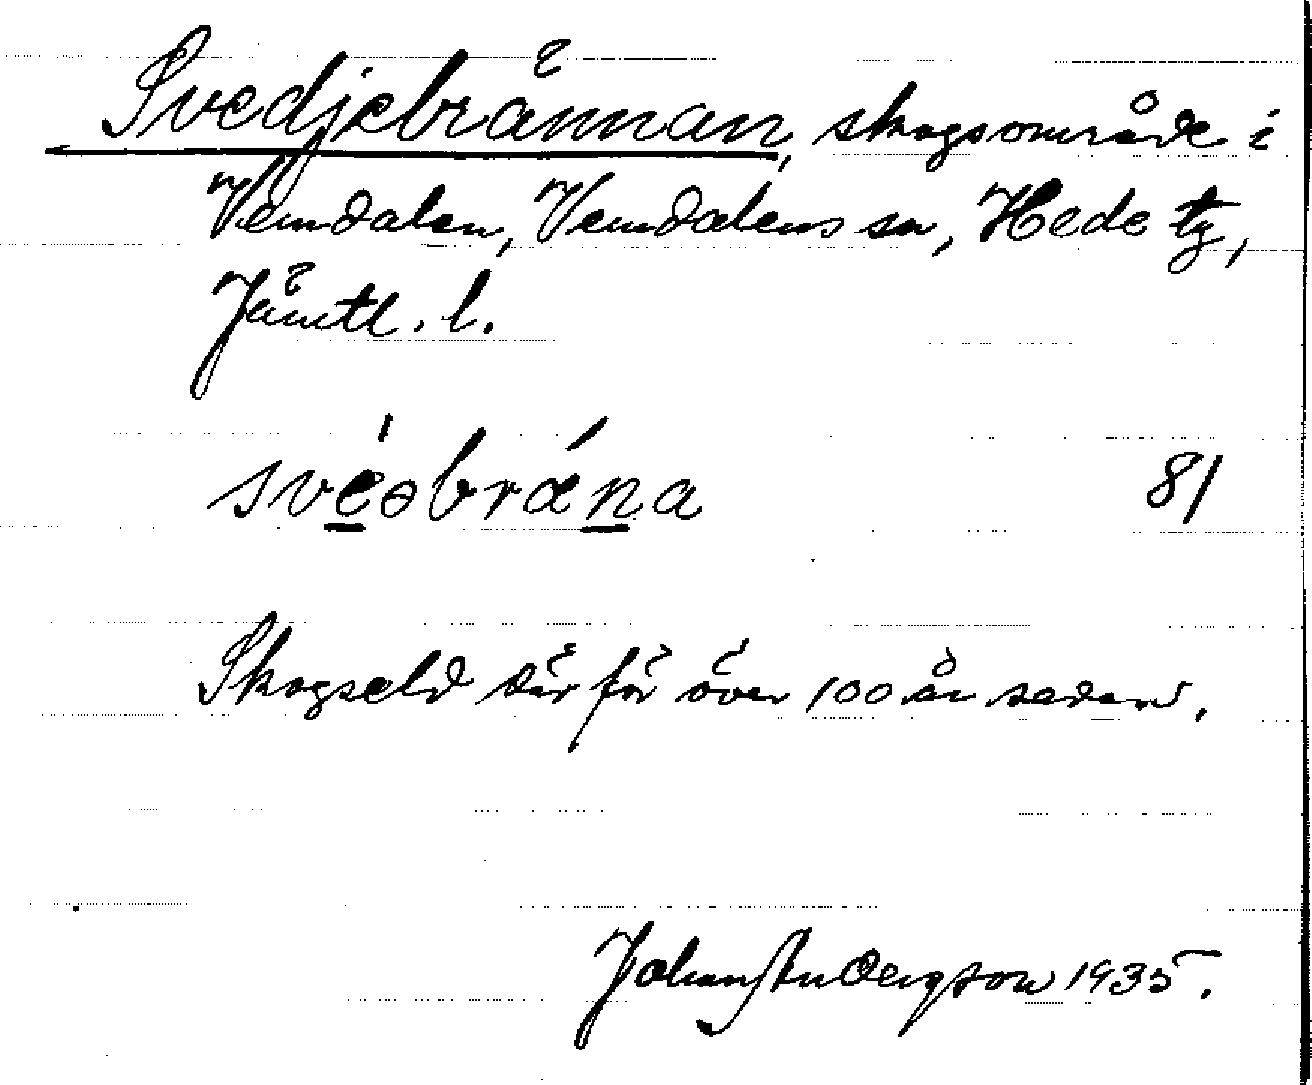 Svedjebrännan, skogsområde i
Vemdalen, Vemdalens sn, Hede tg,
Jämtl. l.
svéəbrǽna 81
Skogseld där för över 100 år sedan.
Johan Andersson 1935.